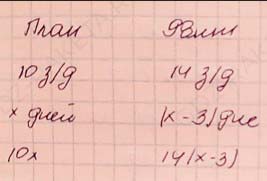 План Явили
10 з/д 14 з/д
x дней (x - 3) дне
10x 14(x-3)